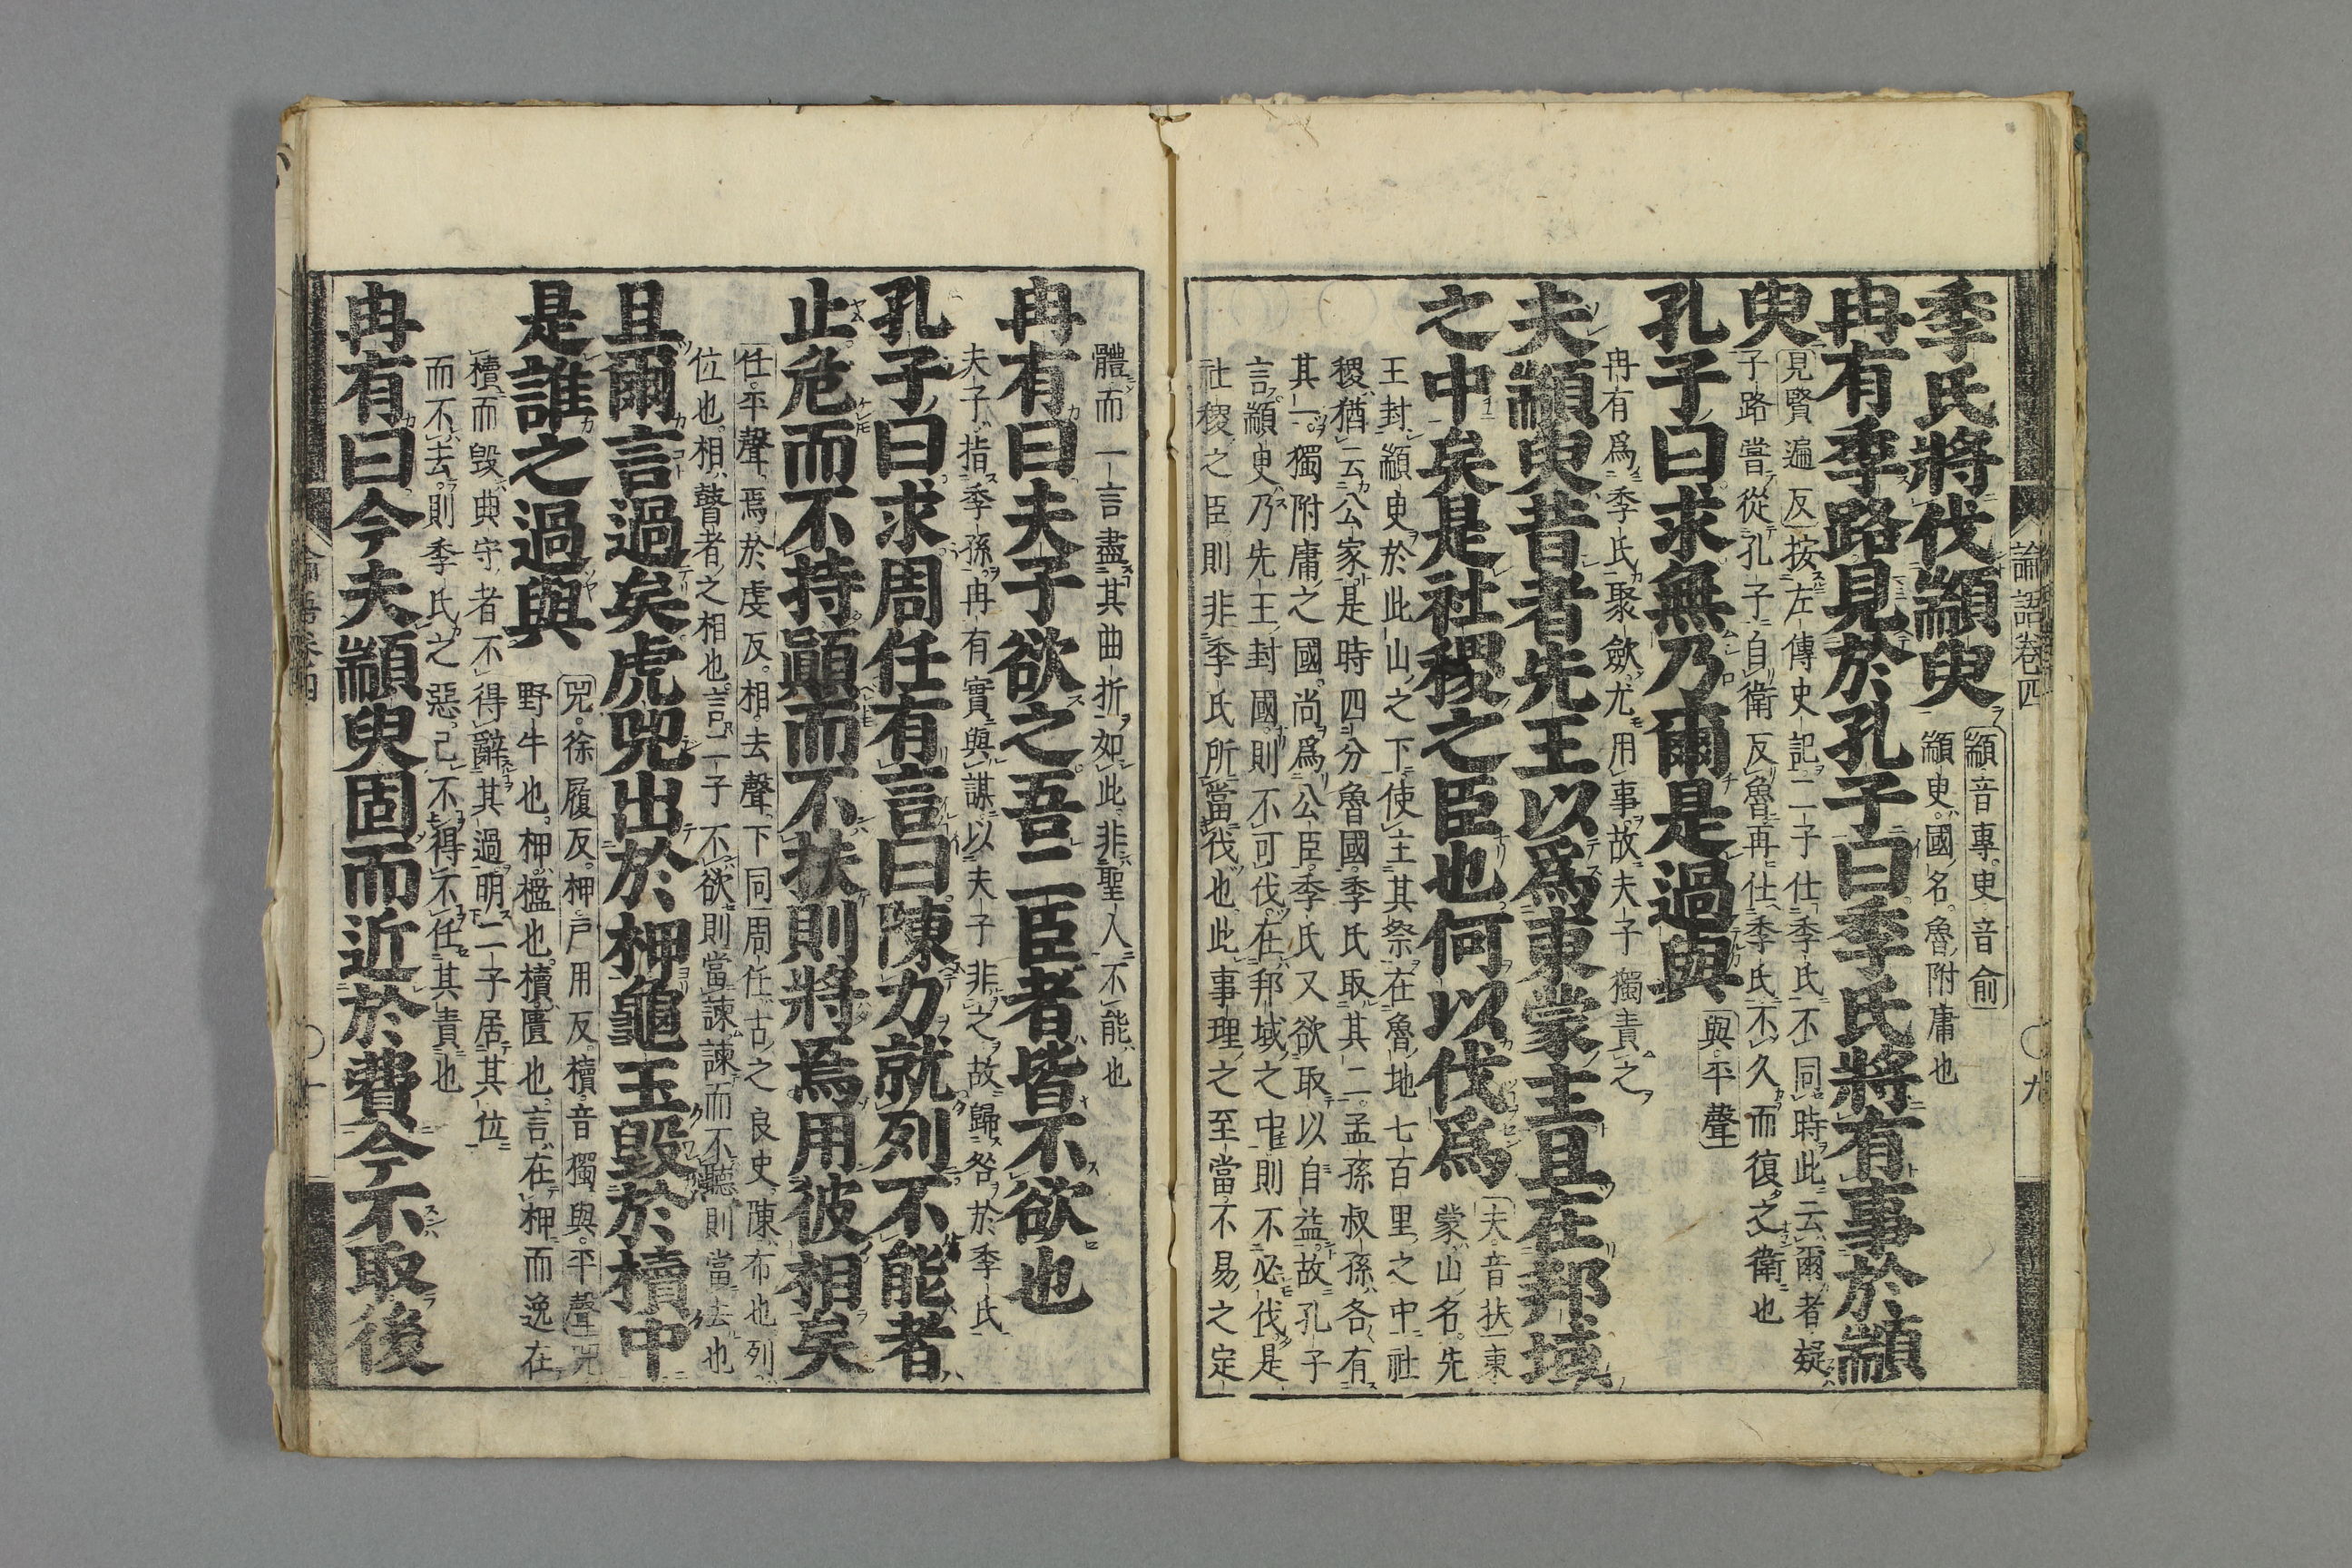 論語卷四
〇九
季氏將伐顓臾
顓音專臾音俞
顓臾國名魯附庸也
冉有季路見於孔子曰季氏將有事於顓
臾
見賢遍反按左傳史記二子仕季氏不同時此云爾者疑
子路嘗從孔子自衛反魯再仕季氏不久而復之衛也
孔子曰求無乃爾是過與
與平聲
冉有爲季氏聚斂尤用事故夫子獨責之
夫顓臾昔者先王以爲東蒙主且在邦域
之中矣是社稷之臣也何以伐爲
夫音扶東
蒙山名先
王封顓臾於此山之下使主其祭在魯地七百里之中社
稷猶云公家是時四分魯國季氏取其二孟孫叔孫各有
其一獨附庸之國尚爲公臣季氏又欲取以自益故孔子
言顓臾乃先王封國則不可伐在邦域之中則不必伐是
社稷之臣則非季氏所當伐也此事理之至當不易之定
體而一言盡其曲折如此非聖人不能也
冉有曰夫子欲之吾二臣者皆不欲也
夫子指季孫冉有實與謀以夫子非之故歸咎於季氏
孔子曰求周任有言曰陳力就列不能者
止危而不持顚而不扶則將焉用彼相矣
任平聲焉於虔反相去聲下同周任古之良史陳布也列
位也相瞽者之相也言二子不欲則當諫諫而不聽則當去也
且爾言過矣虎兕出於柙龜玉毀於櫝中
是誰之過與
兕徐履反柙戶用反櫝音獨與平聲兕
野牛也柙檻也櫝匱也言在柙而逸在
櫝而毀典守者不得辭其過明二子居其位
而不去則季氏之惡己不得不任其責也
冉有曰今夫顓臾固而近於費今不取後
論語卷四
〇十